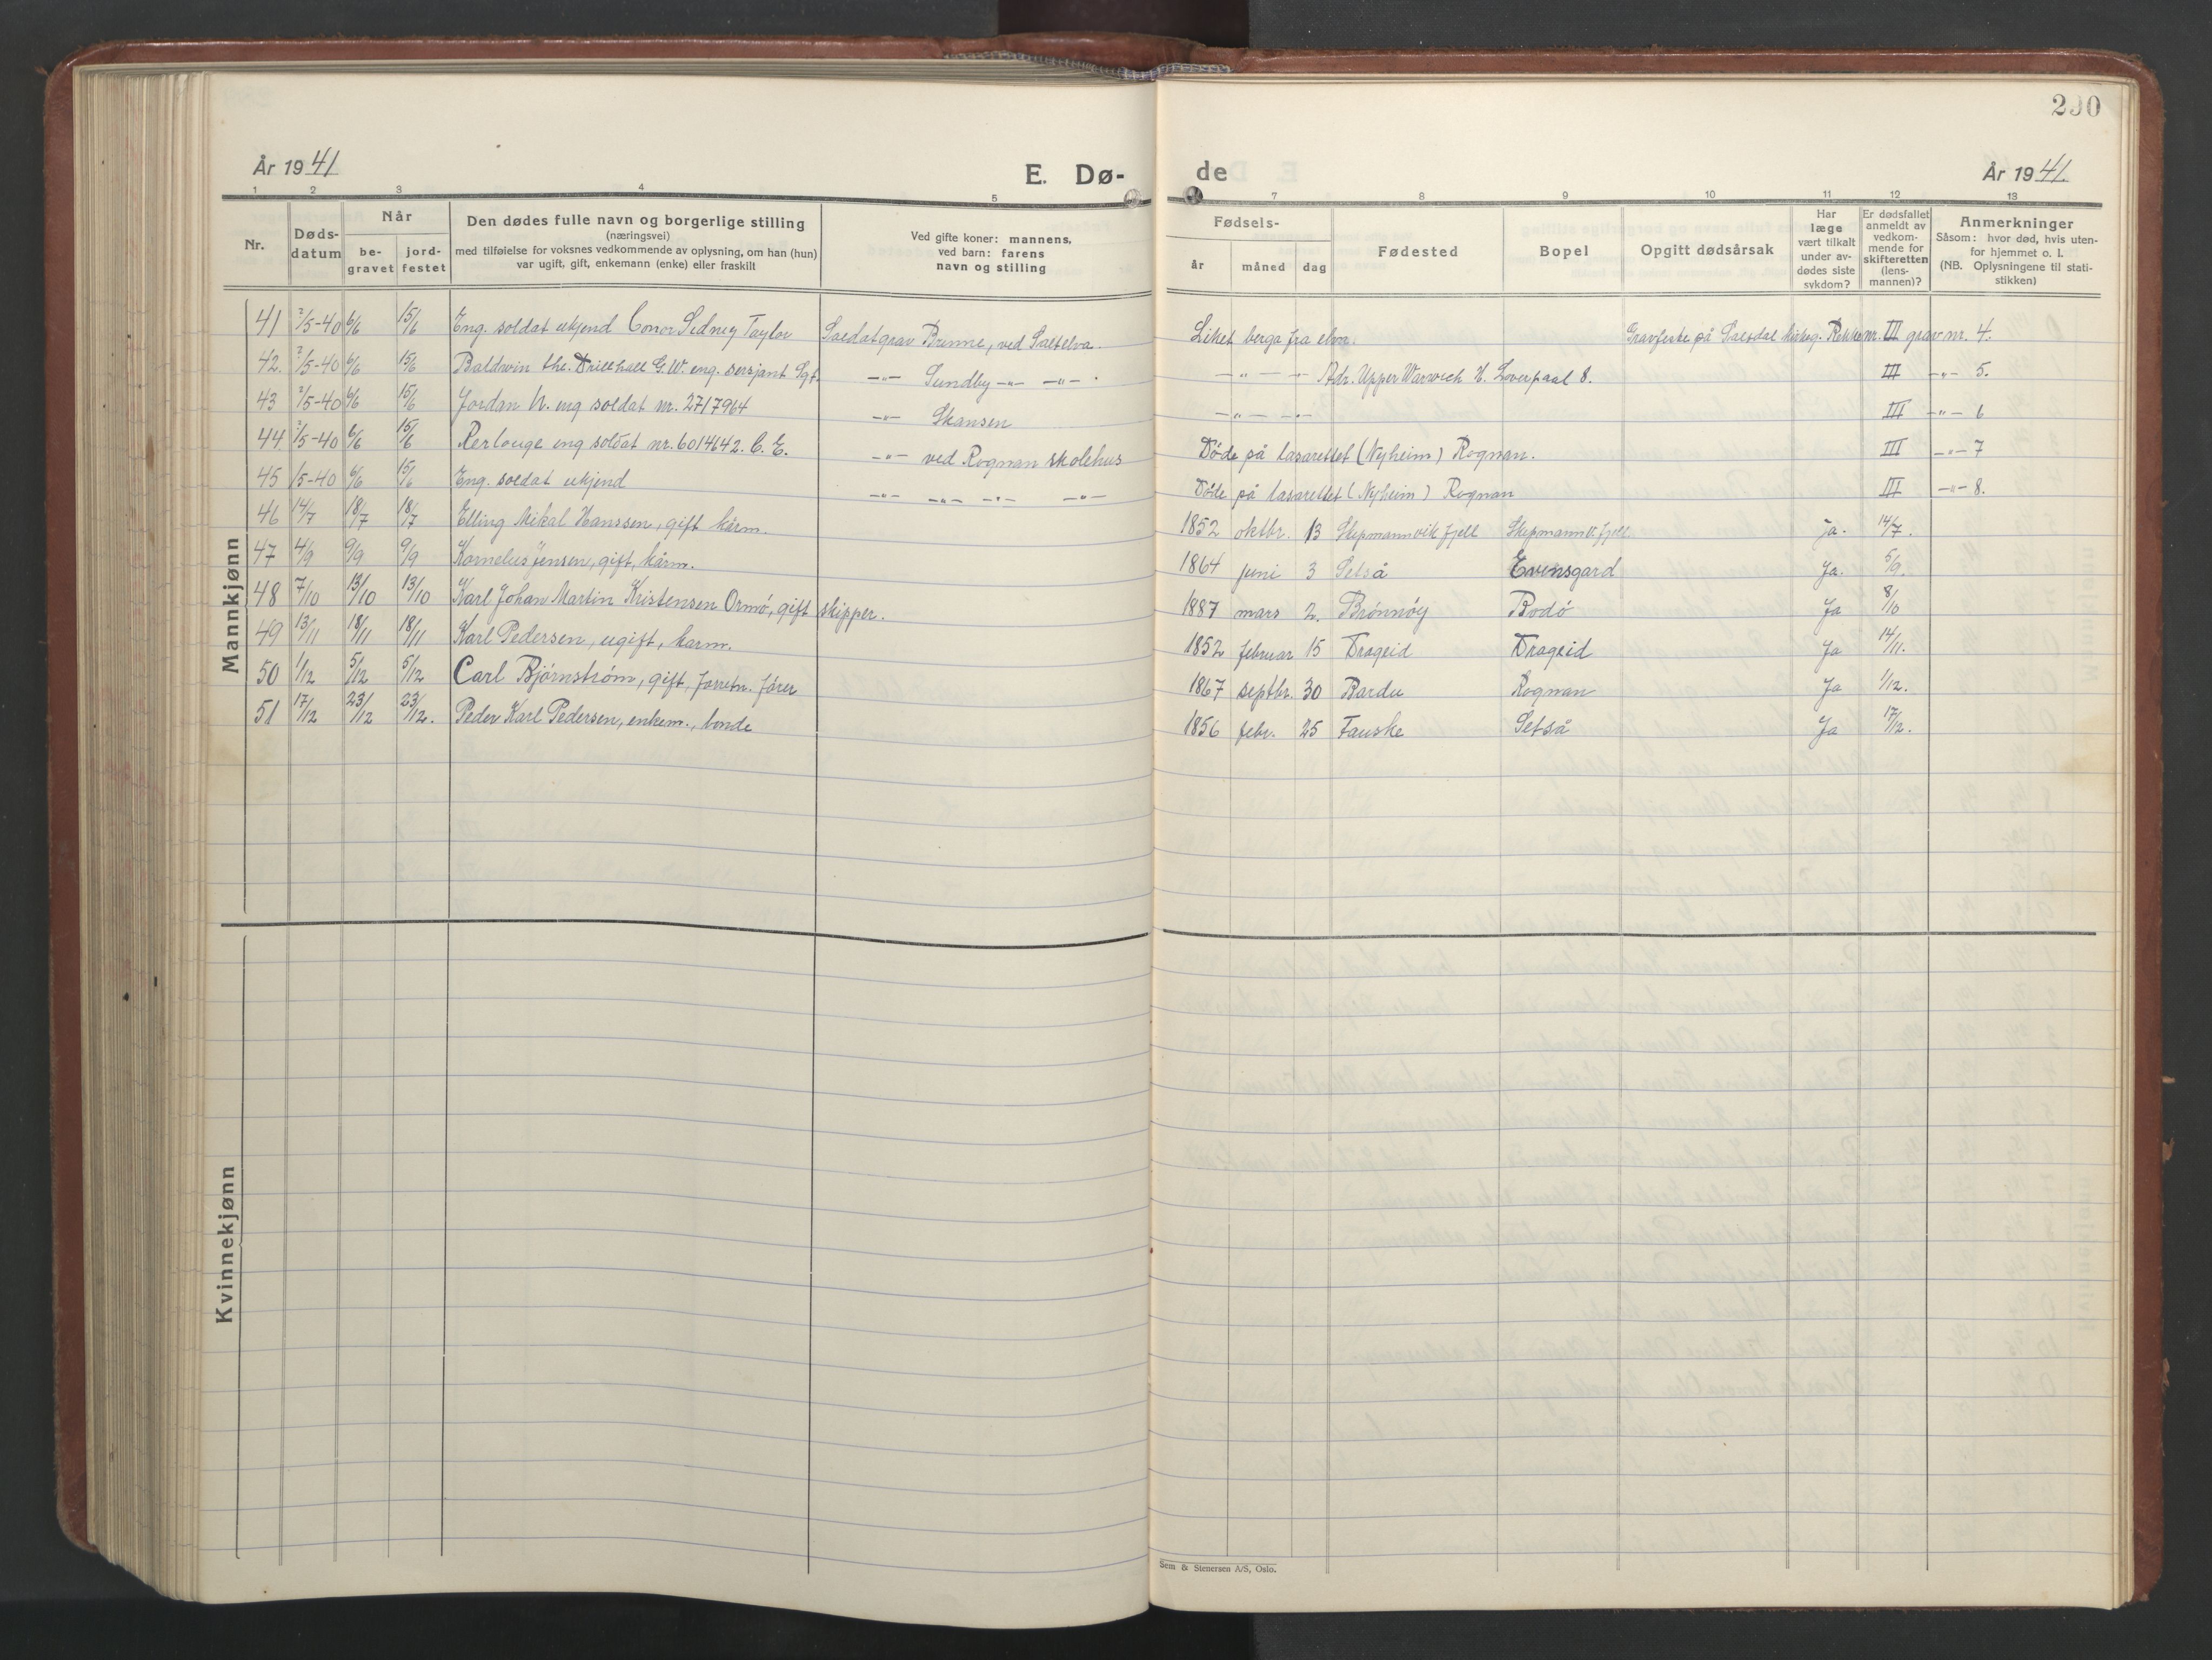 230
År 1941
E. Dø-
de
År 1941.
1 2 3 4 5 7 8 9 10 11 12 13
Nr.
Døds-
datum
Når
be-
gravet
jord-
festet
Den dødes fulle navn og borgerlige stilling
(næringsvei)
med tilføielse for voksnes vedkommende av oplysning, om han (hun)
var ugift, gift, enkemann (enke) eller fraskilt
Ved gifte koner: mannens,
ved barn: farens
navn og stilling
Fødsels-
år
måned
dag
Fødested
Bopel
Opgitt dødsårsak
Har
læge
vært tilkalt
under av-
dødes siste
sykdom?
Er dødsfallet
anmeldt av
vedkom-
mende for
skifteretten
(lens-
mannen)?
Anmerkninger
Såsom: hvor død, hvis uten-
for hjemmet o. l.
(NB. Oplysningene til stati-
stikken)
Mannkjønn
41 2/5-40 6/6 15/6 Eng. soldat ukjend Conor Sidney Taylor Soldatgrav Brenne, ved Saltelva. Liket berga fra elva. Gravfeste på Saltdal kirkeg. Rekke nr. III grav nr. 4.
42. 2/5-40 6/6 15/6 Baldwin the. Drillhall G.W. eng. sersjant Sgt. -"- Sundby -"- -"- -"- -"- Adr. Upper Warwick St. Loverpaal 8. III -"- 5.
43 2/5-40 6/6 15/6 Jordan W. eng soldat nr. 2717964 -"- Skansen -"- -"- III -"- 6
44. 2/5-40 6/6 15/6 Rerlouge eng soldat nr. 6014642. C. E. -"- ved Rognan skolehus Døde på lasarettet (Nyheim) Rognan. III -"- 7
45 /5-40 6/6 15/6 Eng. soldat ukjend -"- -"- -"- -"- Døde på lasarettet (Nyheim) Rognan III -"- 8.
46 14/7 18/7 18/7 Elling Mikal Hanssen, gift kårm. 1852 oktbr. 13 Skipmannvik fjell Skipmannv. fjell ja. 14/7.
47 4/9 9/9 9/9 Kornelius Jensen, gift, kårm. 1864 juni 3 Setså Evensgard Ja. 5/9.
48 7/10 13/10 13/10 Karl Johan Martin Kristensen Ormø, gift skipper. 1887 mars 2. Brønnøy Bodø Ja 8/10
49 13/11 18/11 18/11 Karl Pedersen, ugift, karm. 1852 februar 15 Drageid Drageid Ja 14/11.
50 1/12 5/12 5/12 Carl Bjørnstrøm, gift, forretn. fører 1867 septbr. 30 Bardu Rognan Ja 1/12.
51 17/12 23/12 23/12. Peder Karl Pedersen, enkem., bonde 1856 febr. 25 Fauske Setså Ja 17/12.
Kvinnekjønn
Sem & Stenersen A/S, Oslo.